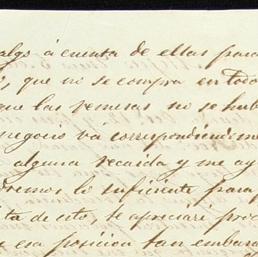 algo á cuenta de ellas para
, que no se compra en todo
que las remesas no se hub
negocio vá correspondiendo
alguna recaida y me ay
dremos lo suficiente para
de esto, te apreciaré pro
esa posicion tan embara